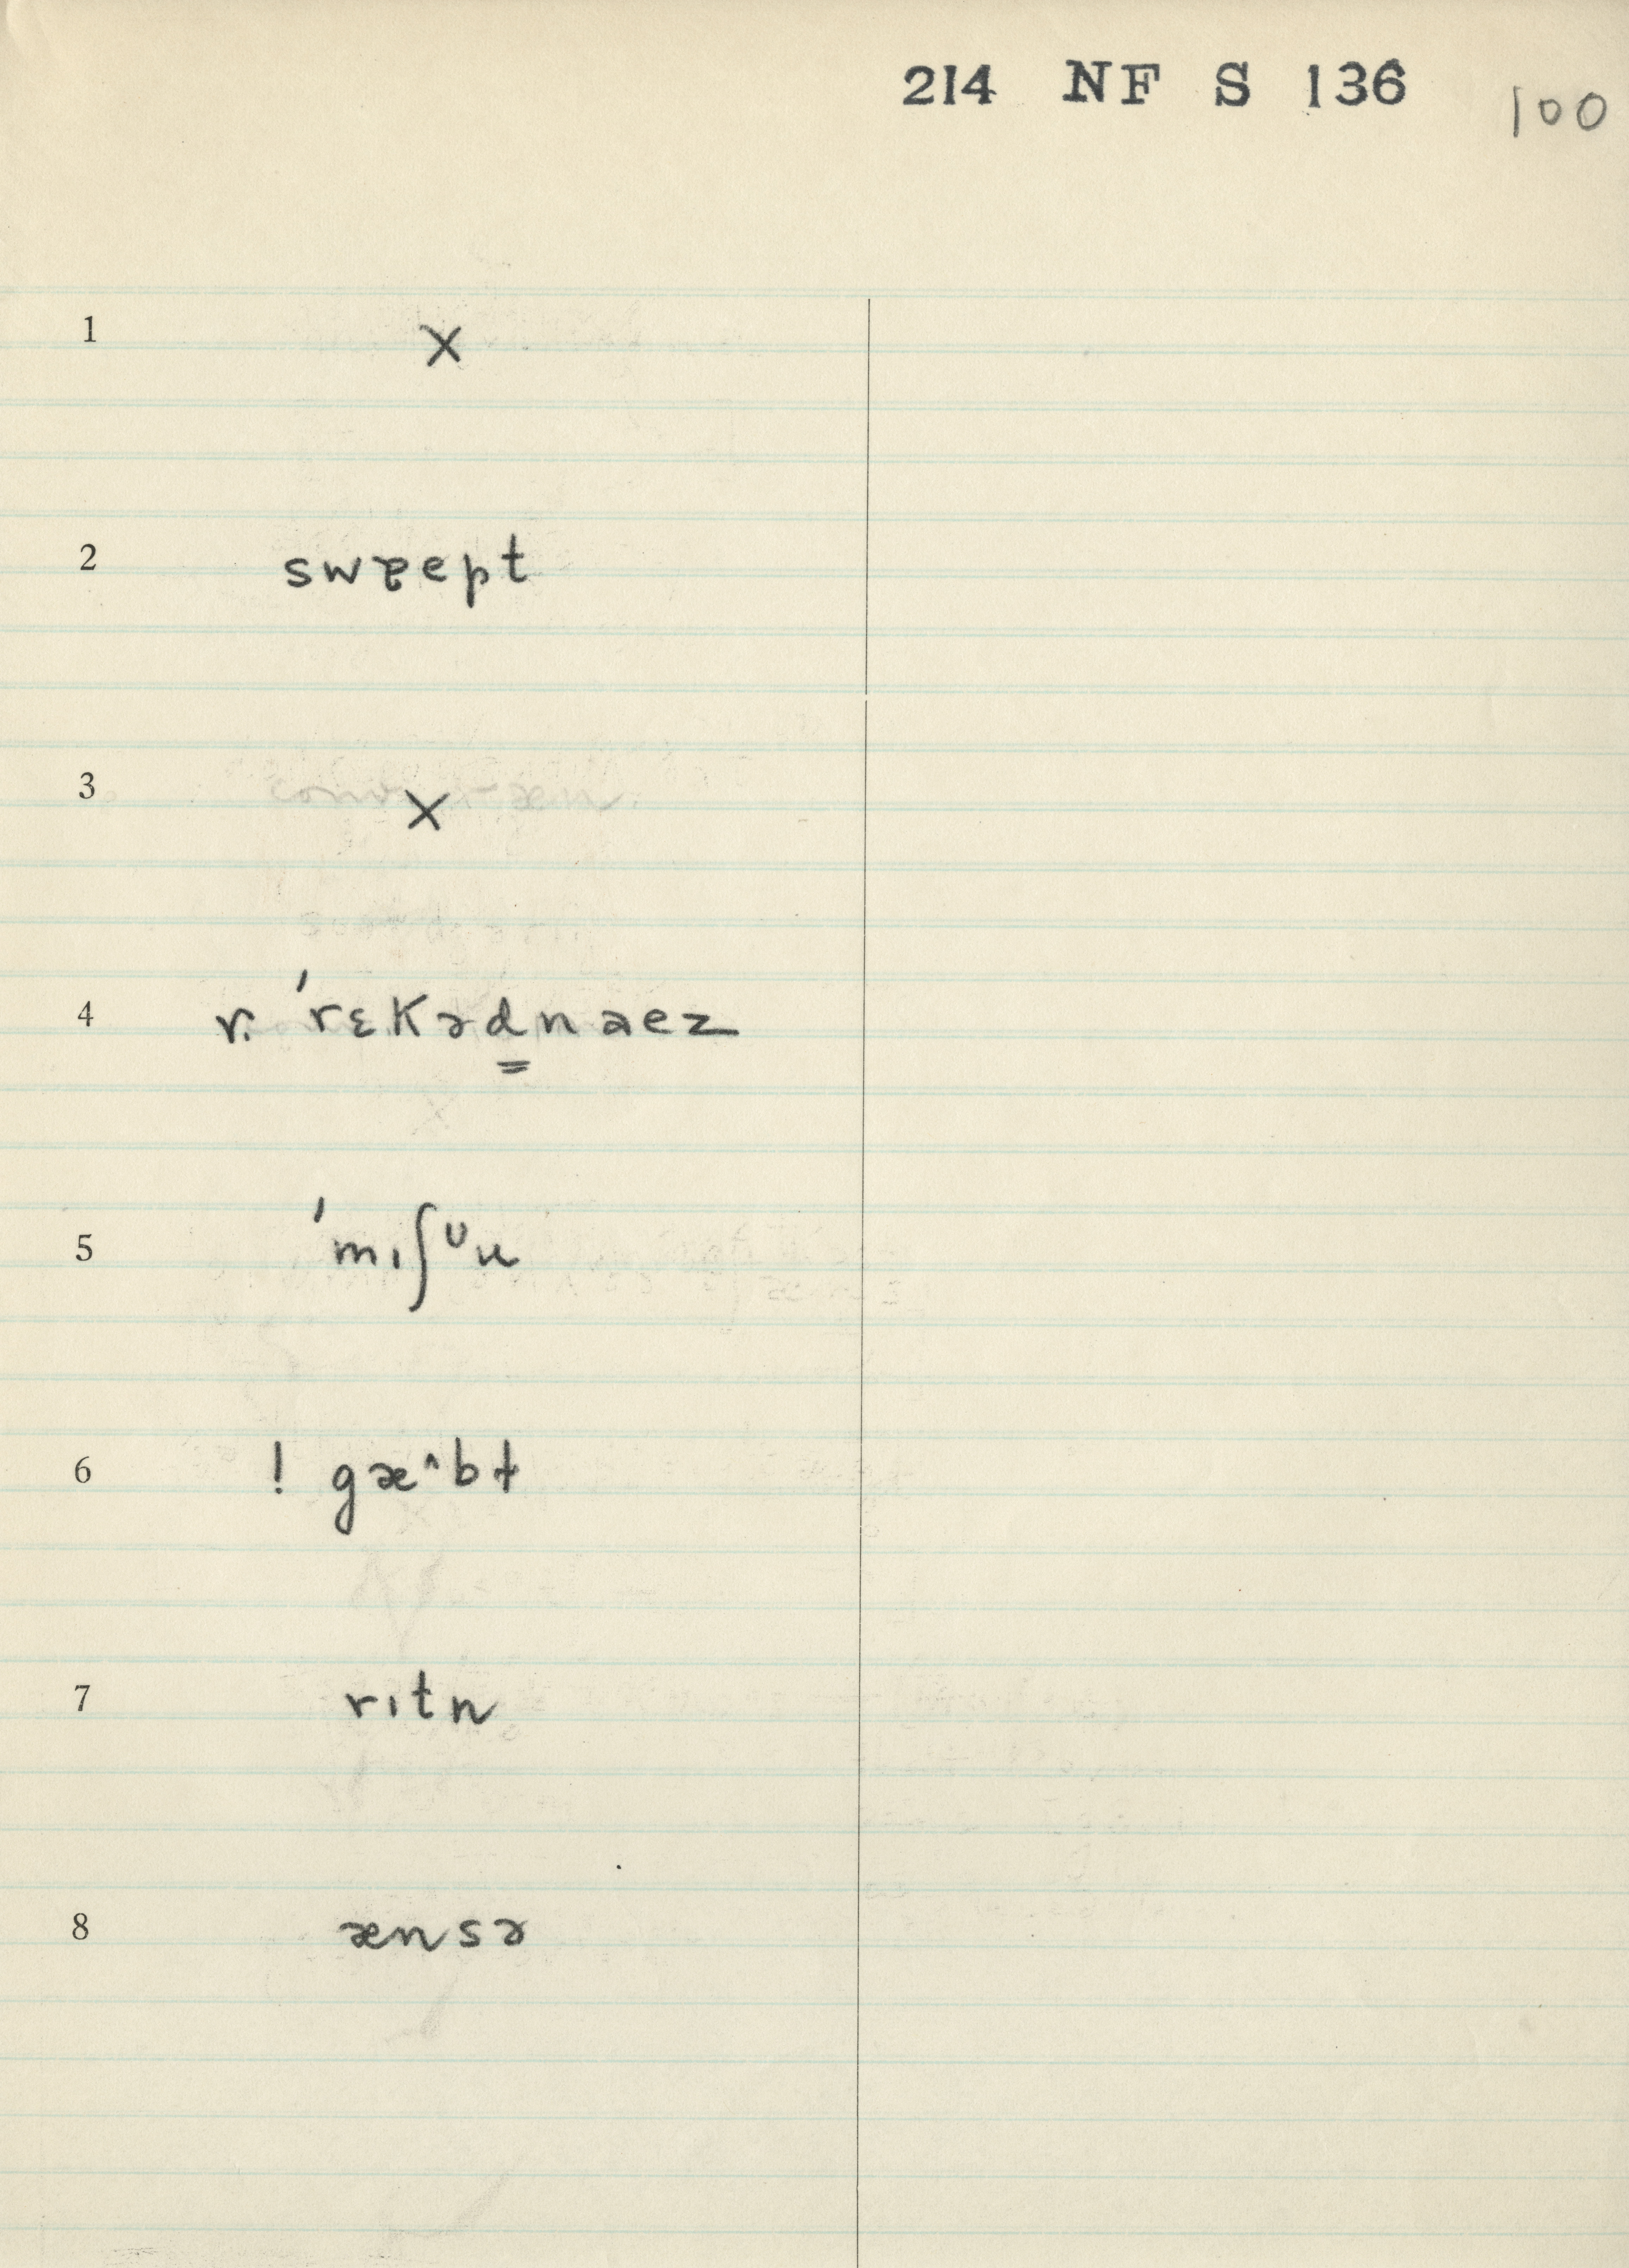 214 NF S 136 100
1 X
2 swɐept
3 X
4 r. 'rɛkəd̳naez
5 'mɪʃᶸu
6 ! gæ^bt
7 rɪtn
8 ænsə